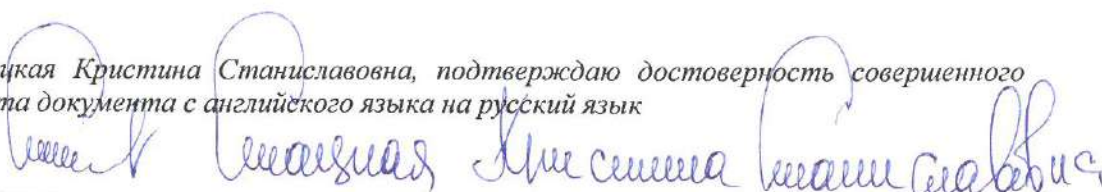 цкая Кристина Станиславовна, подтверждаю достоверность совершенного
та документа с английского языка на русский язык
Кристина Станиславовна